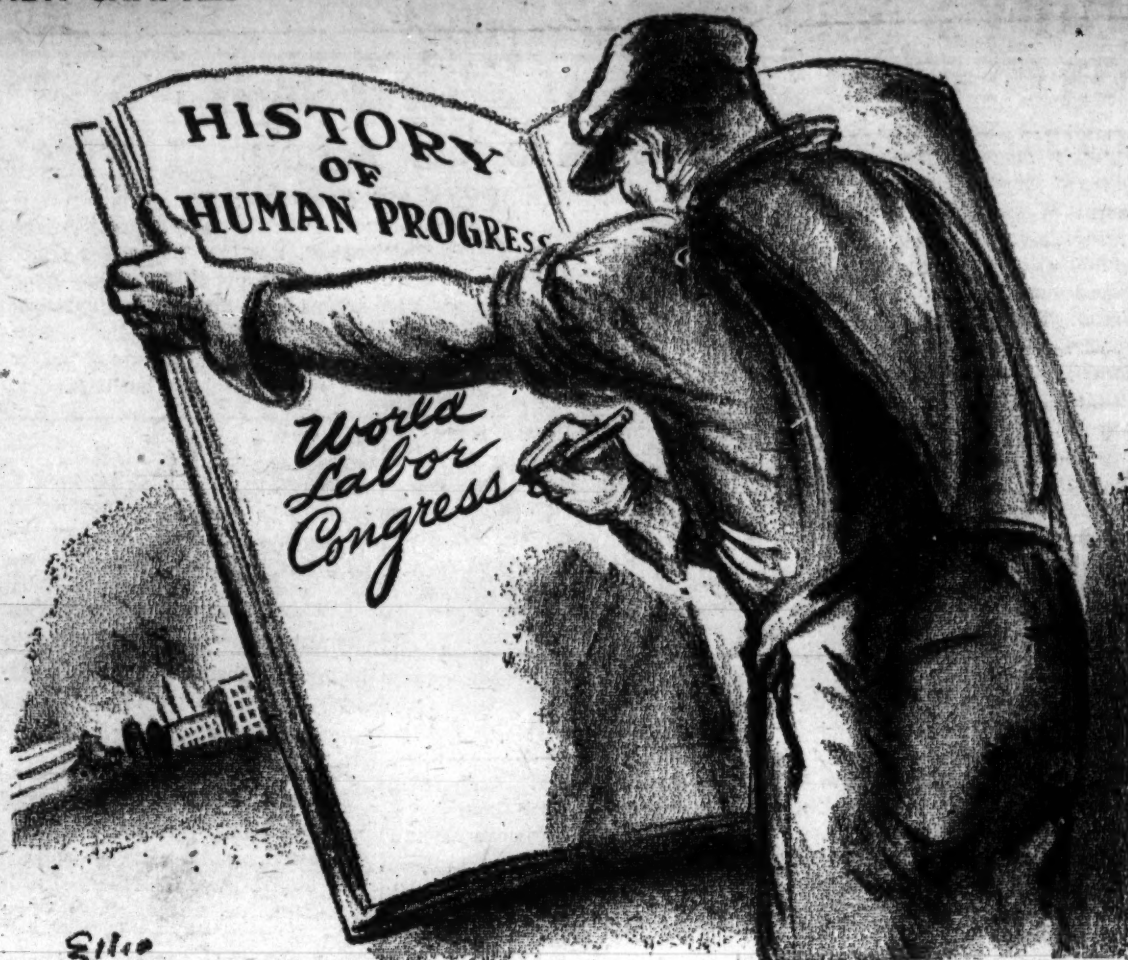 HISTORY
OF
HUMAN PROGRESS
World
Labor
Congress